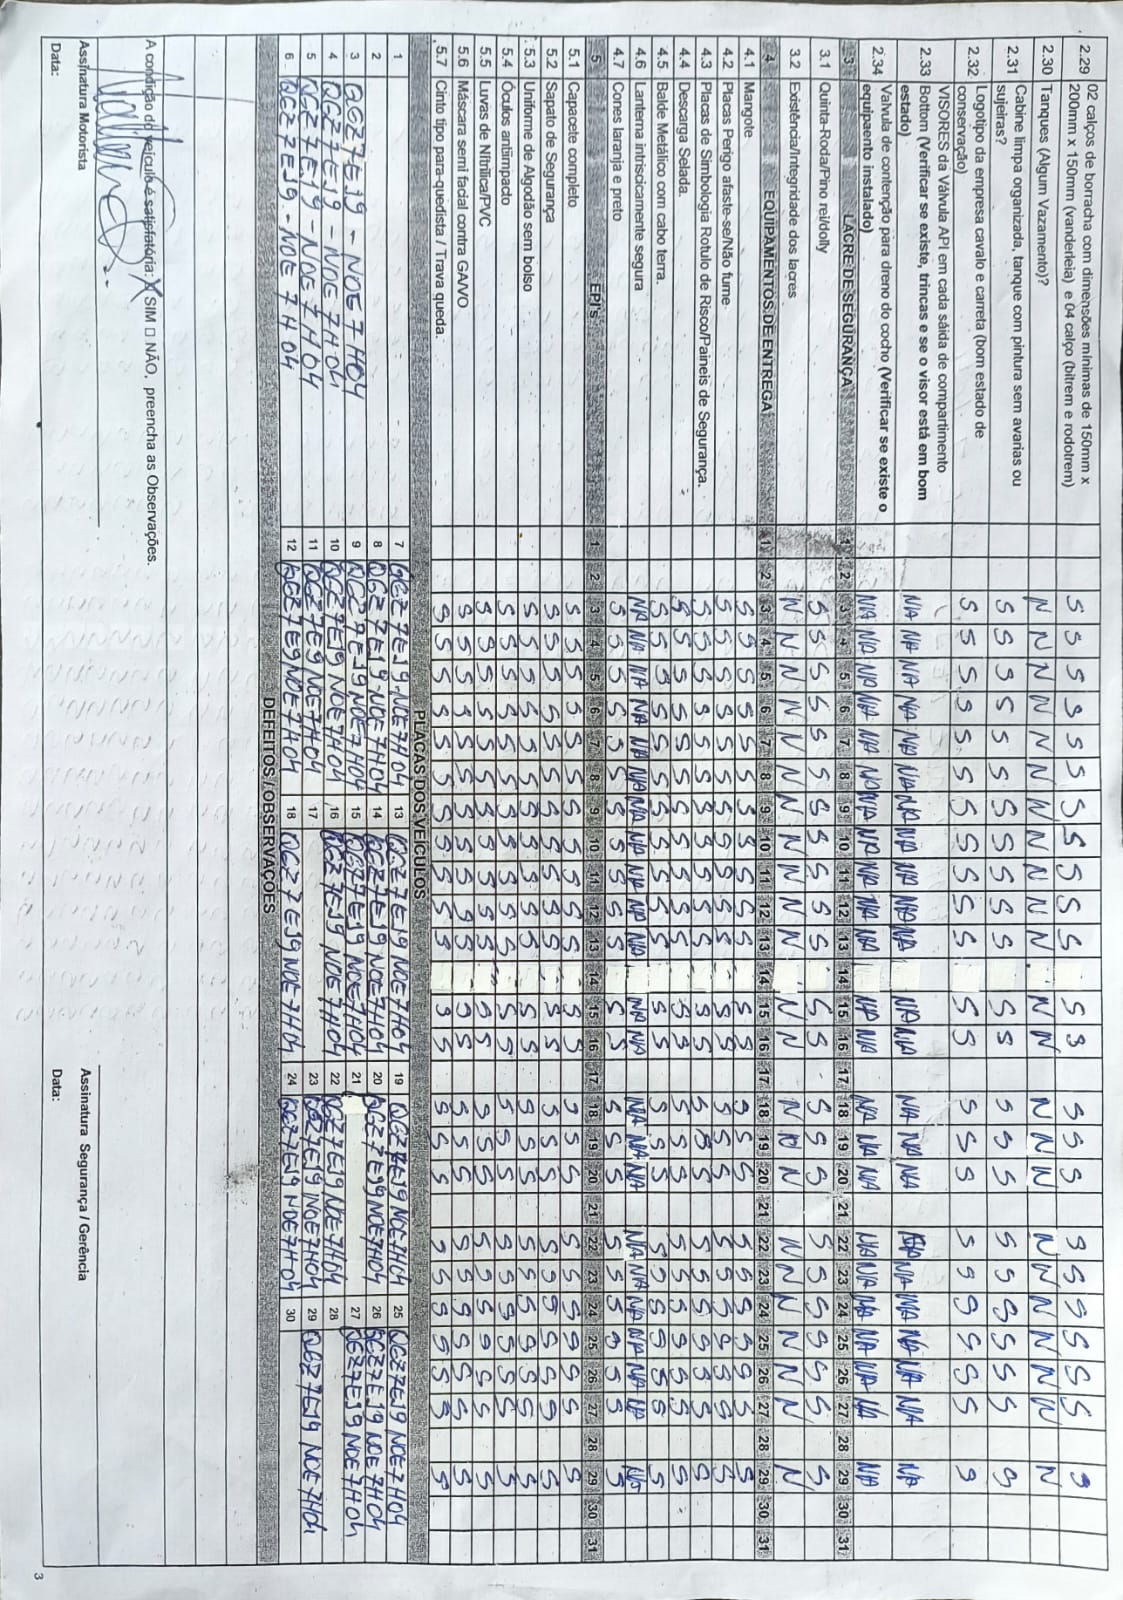 2.29 02 calços de borracha com dimensões mínimas de 150mm x 200mm x 150mm (vanderleia) e 04 calço (bitrem e rodotrem) S S S S S S S S S S S S S S S S S S S S S S S
2.30 Tanques (Algum Vazamento)? N N N N N N N N N N N N N N N N N N N N N N N
2.31 Cabine limpa organizada, tanque com pintura sem avarias ou sujeiras? S S S S S S S S S S S S S S S S S S S S S S S
2.32 Logotipo da empresa cavalo e carreta (bom estado de conservação) S S S S S S S S S S S S S S S S S S S S S S S
2.33 VISORES da Válvula API em cada sáida de compartimento Bottom (Verificar se existe, trincas e se o visor está em bom estado) N/A N/A N/A N/A N/A N/A N/A N/A N/A N/A N/A N/A N/A N/A N/A N/A N/A N/A N/A N/A N/A N/A
2.34 Valvula de contenção para dreno do cocho (Verificar se existe o equipaento instalado) N/A N/A N/A N/A N/A N/A N/A N/A N/A N/A N/A N/A N/A N/A N/A N/A N/A N/A N/A N/A N/A N/A N/A
3 LACRE DE SEGURANÇA 1 2 3 4 5 6 7 8 9 10 11 12 13 14 15 16 17 18 19 20 21 22 23 24 25 26 27 28 29 30 31
3.1 Quinta-Roda/Pino rei/dolly S S S S S S S S S S S S S S S S S S S S S S S
3.2 Existência/Integridade dos lacres N N N N N N N N N N N N N N N N N N N N N N N
4 EQUIPAMENTOS DE ENTREGA 1 2 3 4 5 6 7 8 9 10 11 12 13 14 15 16 17 18 19 20 21 22 23 24 25 26 27 28 29 30 31
4.1 Mangote S S S S S S S S S S S S S S S S S S S S S S S
4.2 Placas Perigo afaste-se/Não fume S S S S S S S S S S S S S S S S S S S S S S S
4.3 Placas de Simbologia Rotulo de Risco/Paineis de Segurança. S S S S S S S S S S S S S S S S S S S S S S S
4.4 Descarga Selada. S S S S S S S S S S S S S S S S S S S S S S S
4.5 Balde Metálico com cabo terra. S S S S S S S S S S S S S S S S S S S S S S S
4.6 Lanterna intriscicamente segura N/A N/A N/A N/A N/A N/A N/A N/A N/A N/A N/A N/A N/A N/A N/A N/A N/A N/A N/A N/A N/A N/A N/A
4.7 Cones laranja e preto S S S S S S S S S S S S S S S S S S S S S S S
5 EPI's 1 2 3 4 5 6 7 8 9 10 11 12 13 14 15 16 17 18 19 20 21 22 23 24 25 26 27 28 29 30 31
5.1 Capacete completo S S S S S S S S S S S S S S S S S S S S S S S
5.2 Sapato de Segurança S S S S S S S S S S S S S S S S S S S S S S S
5.3 Uniforme de Algodão sem bolso S S S S S S S S S S S S S S S S S S S S S S S
5.4 Óculos antiimpacto S S S S S S S S S S S S S S S S S S S S S S S
5.5 Luvas de Nítrilica/PVC S S S S S S S S S S S S S S S S S S S S S S S
5.6 Máscara semi facial contra GA/VO S S S S S S S S S S S S S S S S S S S S S S S
5.7 Cinto tipo para-quedista / Trava queda. S S S S S S S S S S S S S S S S S S S S S S S
PLACAS DOS VEÍCULOS
1 7 QGZ7E19-NOE7H04 13 QGZ7E19 NOE7H04 19 QGZ7E19 NOE7H04 25 QGZ7E19 NOE7H04
2 8 QGZ7E19-NOE7H04 14 QGZ7E19 NOE7H04 20 QGZ7E19 NOE7H04 26 QGZ7E19 NOE7H04
3 QGZ7E19 - NOE7H04 9 QGZ7E19 NOE7H04 15 QGZ7E19 NOE7H04 21 27 QGZ7E19 NOE7H04
4 QGZ7E19 - NOE7H04 10 QGZ7E19 NOE7H04 16 QGZ7E19 NOE7H04 22 QGZ7E19 NOE7H04 28
5 QGZ7E19 - NOE7H04 11 QGZ7E9 NOE7H04 17 23 QGZ7E19 NOE7H04 29 QGZ7E19 NOE7H04
6 QGZ7E19 - NOE7H04 12 QGZ7E9 NOE7H04 18 QGZ7E19 NOE7H04 24 QGZ7E19 NOE7H04 30
DEFEITOS / OBSERVAÇÕES
A condição do veículo é satisfatória: X SIM □ NÃO, preencha as Observações.
Assinatura Motorista Assinatura Segurança / Gerência
Data: Data:
3